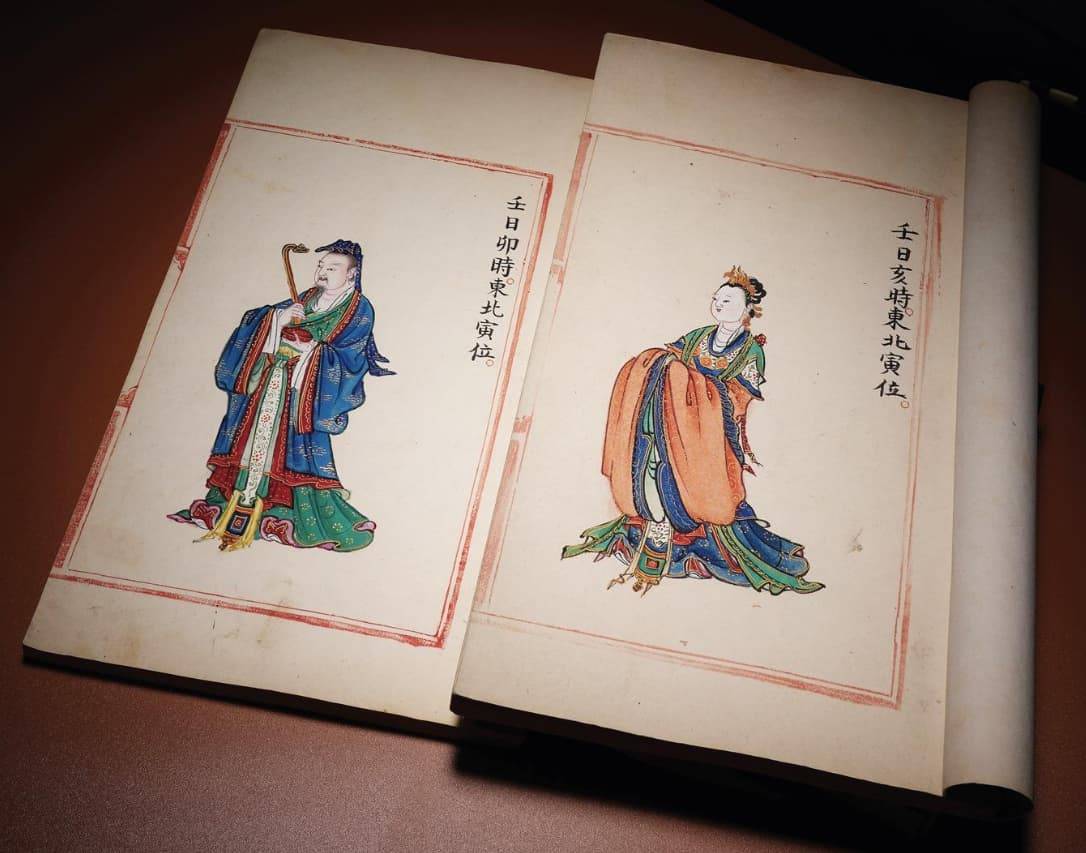 壬日卯時。東北寅位。
壬日亥時。東北寅位。